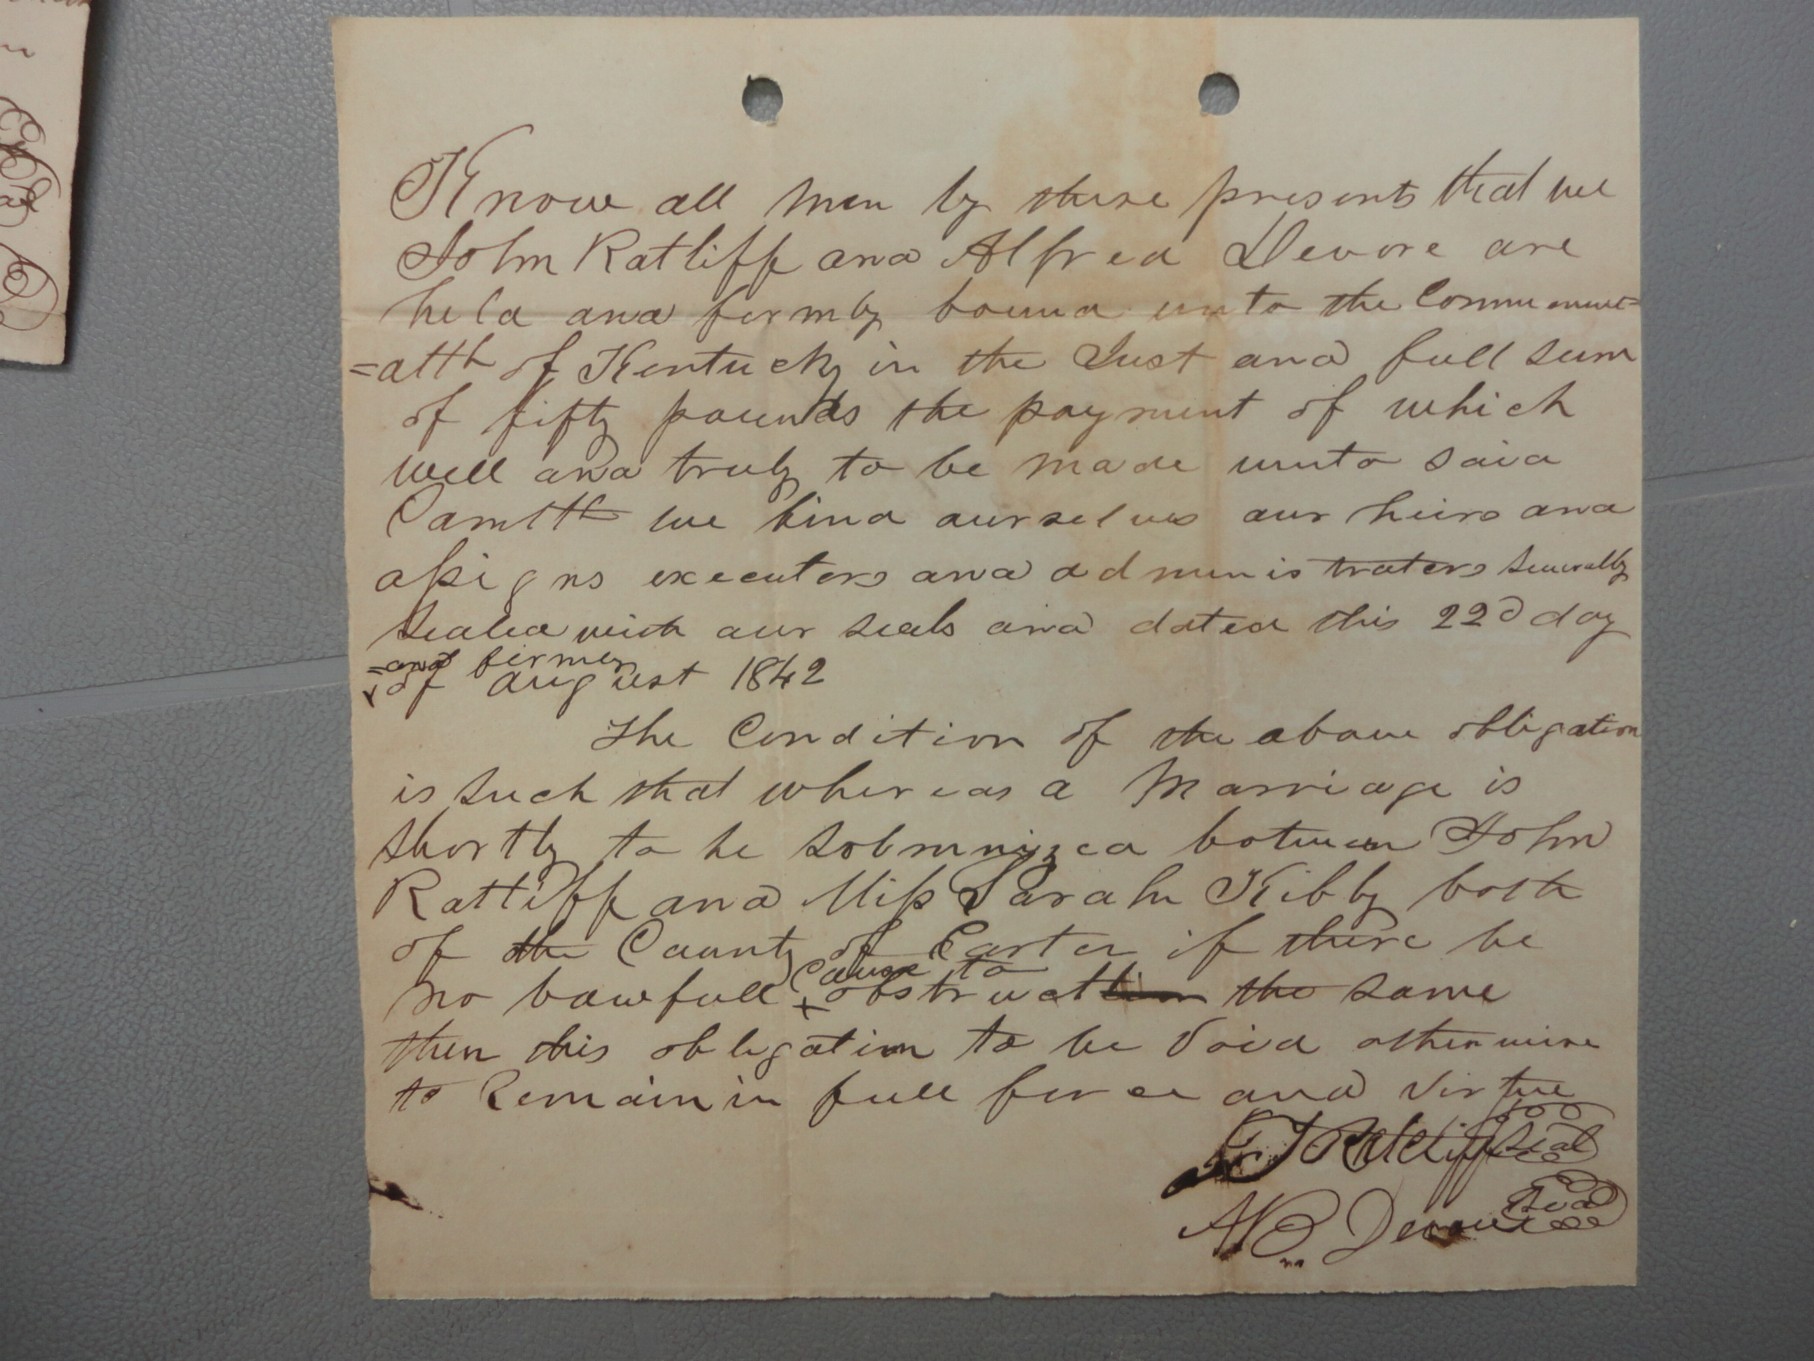 Know all men by these presents that we
John Ratliff and Alfred Devore are
held and firmly bound unto the Common=
=alth of Kentucky in the Just and full sum
of fifty pounds the payment of which
well and truly to be made unto said
Comlth we bind ourselves our heirs and
assigns executors and administrators severally
=and firmly
Sealed with our seals and dated this 22d day
of August 1842
The Condition of the above obligation
is such that whereas a Marriage is
shortly to be solemnized between John
Ratliff and Miss Sarah Kibby both
of the County of Carter if there be
no lawfull cause to obstruct the same
then this obligation to be Void otherwise
to Remain in full force and virtue
J Ratcliff Seal
Devore Seal